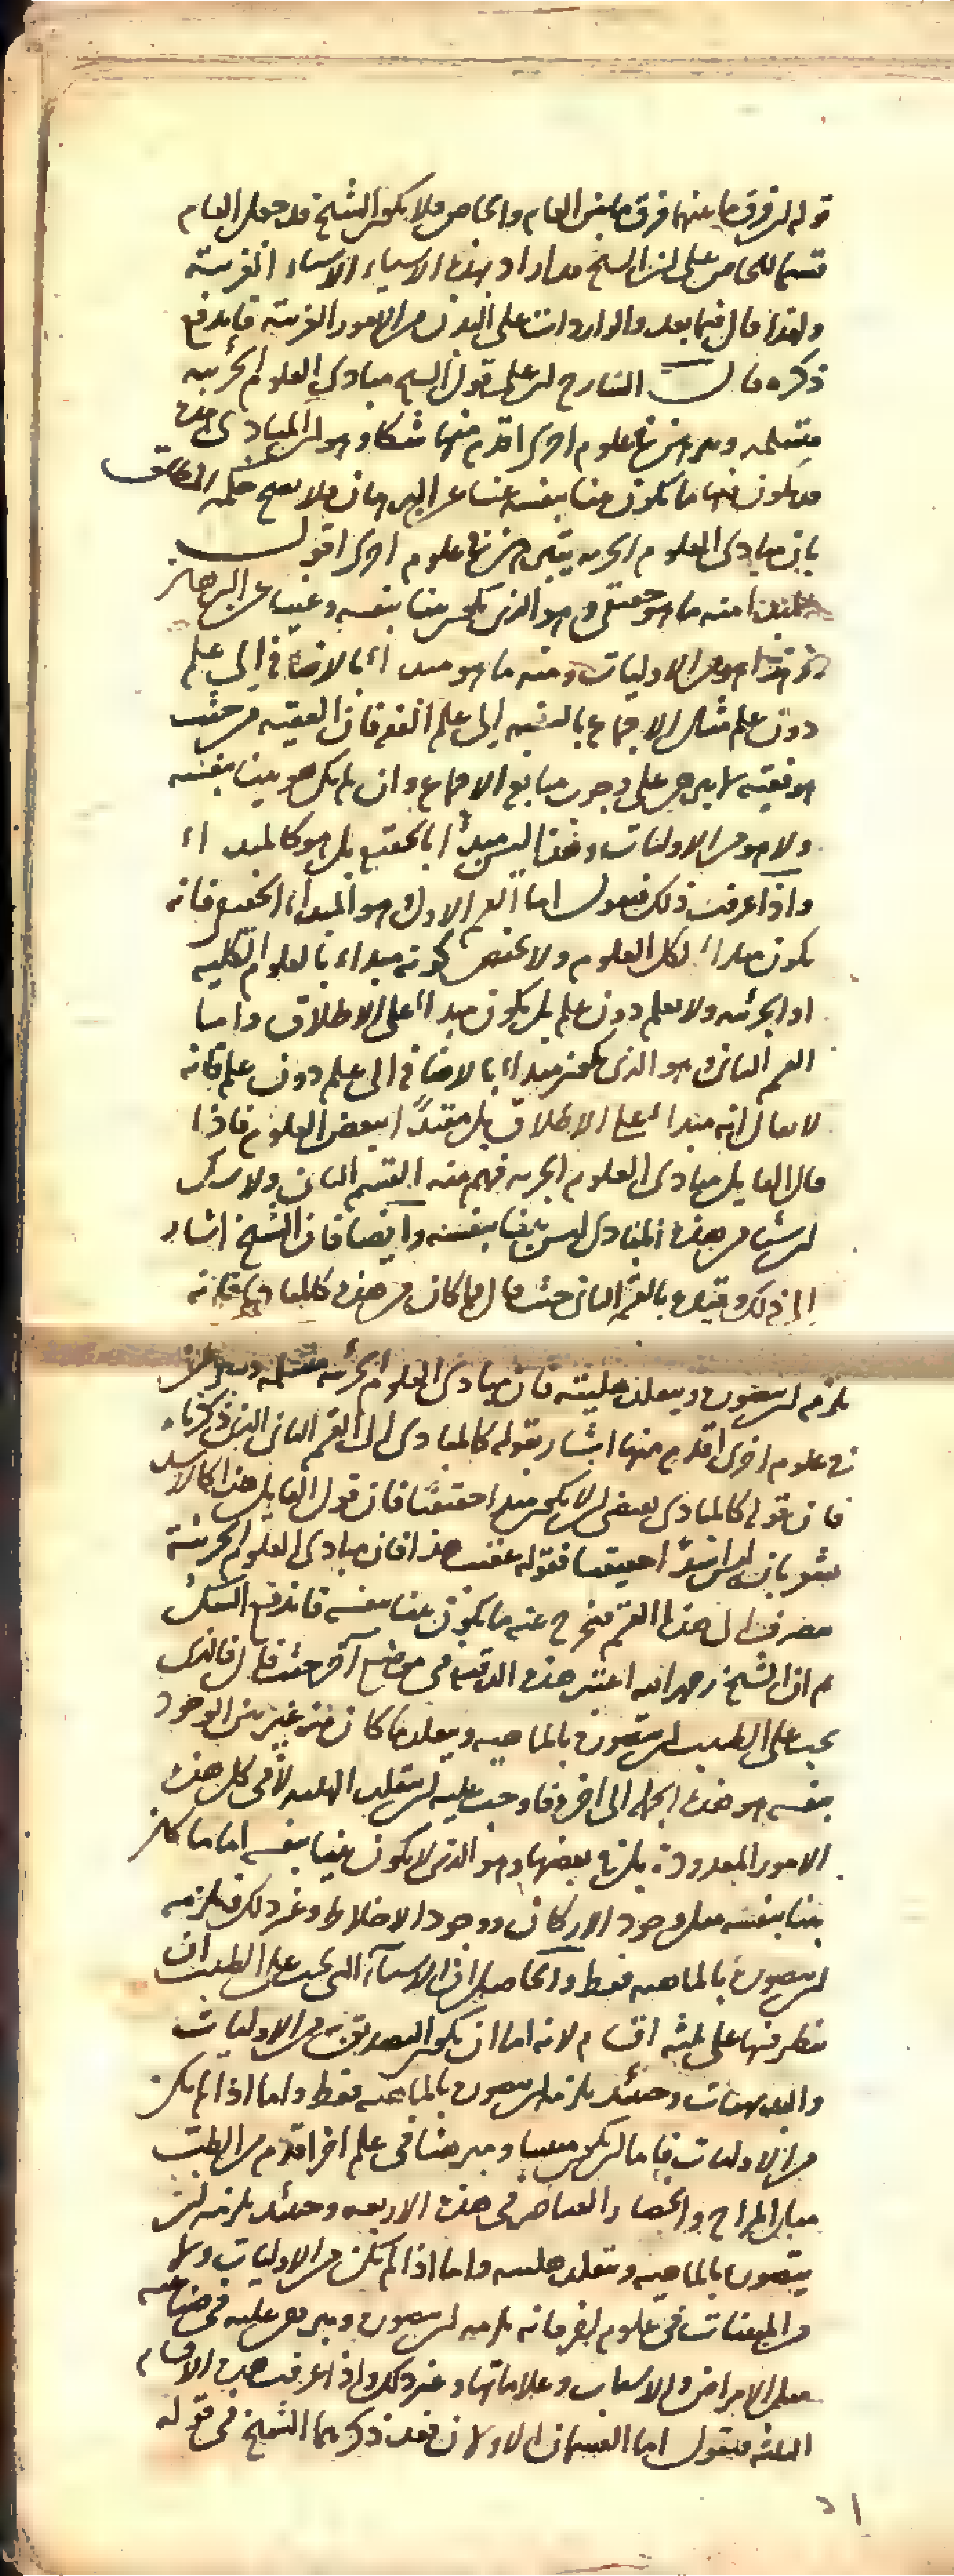 قوله ان فرق ما بينهما فرق ما بين العام والخاص فلا يكون الشيخ قد جعل العام
قسيما للخاص على ان الشيخ قد اراد بهذه الاشياء الاشياء الغريبة
ولهذا قال فيما بعد والواردات على البدن من الامور الغريبة فاندفع
ذكره قال الشارح ان على قول الشيخ مبادى العلوم الجزئيه
متسلمه وتبرهن في علوم اخرى اقدم منها شكا وهو ان المبادى هذه
قد يكون فيها ما يكون بينا بنفسه غنيا عن البرهان فلا يصح حكمه المطلق
بان مبادى العلوم الجزئيه يتبرهن في علوم اخرى اقول
المبدا منه ما هو حقيقى وهو الذى يكون بينا بنفسه وغنيا عن البرهان
هو من الاوليات ومنه ما هو مبداء بالاضافة الى علم
دون علم مثل الاجماع بالنسبه الى علم الفقه فان الفقيه من حيث
هو فقيه لا يبرهن على وجوب متابعة الاجماع وان لم يكن هو بينا بنفسه
ولا هو من الاوليات وهذا ليس مبدأ بالحقيقه بل هو كالمبداء
واذا عرفت ذلك فنقول اما القسم الاول هو المبداء الحقيقى فانه
يكون مبداء لكل العلوم ولا يختص كونه مبداء بالعلوم الكليه
او الجزئيه ولا بعلم دون علم بل يكون مبداء على الاطلاق واما
القسم الثانى وهو الذى يكون مبداء بالاضافة الى علم دون علم فانه
لا يقال انه مبداء على الاطلاق بل مقيدا ببعض العلوم فاذا
قال القايل مبادى العلوم الجزئيه فهم منه القسم الثانى ولا شك
ان شيئا من هذه المبادى ليس بينا بنفسه وايضا فان الشيخ اشار
الى ذلك وقيده بالقسم الثانى حيث قال فما كان من هذه كالمبادى فانه
يلزمه ان يتصوره ويتقلد هليته فان مبادى العلوم الجزئيه متسلمه وتبرهن
في علوم اخرى اقدم منها اشار بقوله كالمبادى الى القسم الثانى الذى ذكرناه
فان قوله كالمبادى يقتضى ان لا يكون مبداء حقيقيا فان قول القايل هذا كالاسد
يشعر بانه ليس اسدا حقيقيا فقوله عقيب هذا فان مبادى العلوم الجزئية
مصرف الى هذا القسم فيخرج عنه ما يكون بينا بنفسه فاندفع الشك
ثم ان الشيخ رحمه الله اعتبر هذه الدقيقه في موضع آخر حيث قال فالذى
يجب على الطبيب ان يتصوره بالماهيه ويتقلد ما كان منه غير بين الوجود
بنفسه هو هذه الجملة الى اخره فاوجب عليه ان يتقلد الهليه لا في كل هذه
الامور المعدودة بل في بعضها وهو الذى لا يكون بينا بنفسه اما ما كان
بينا بنفسه مثل وجود الاركان ووجود الاخلاط وغير ذلك فيلزمه
ان يتصوره بالماهيه فقط والحاصل ان الاشياء التى يجب على الطبيب ان
ينظر فيها على ثلثه اقسام لانه اما ان يكون التصديق به من الاوليات
والبديهيات وحينئذ يلزمه ان يتصوره بالماهيه فقط واما اذا لم يكن
من الاوليات فاما ان يكون مبينا ومبرهنا في علم اخر اقدم من الطب
مثل المزاج وانحصار العناصر في هذه الاربعه وحينئذ يلزمه ان
يتصوره بالماهيه ويتقلد هليته واما اذا لم يكن من الاوليات ولا
من المبينات في علوم اخر فانه يلزمه ان يتصوره ويبرهن عليه في صناعته
مثل الامراض والاسباب وعلاماتها وغير ذلك واذا عرفت هذه الاقسام
الثلثه فنقول اما القسمان الاولان فقد ذكرهما الشيخ في قوله